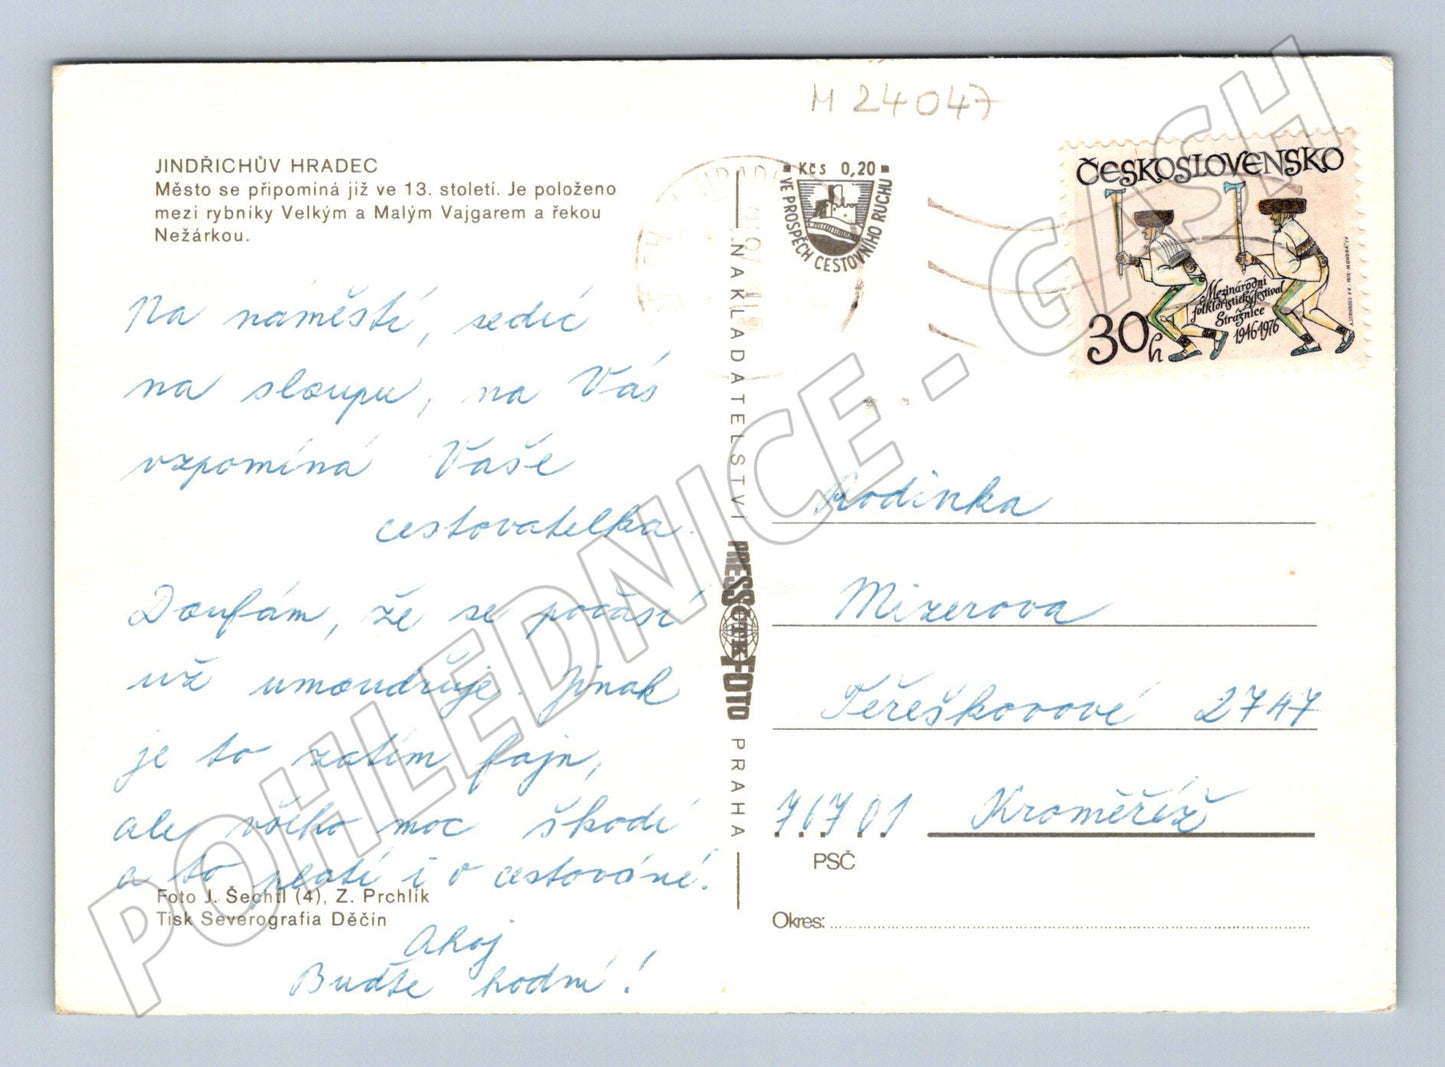 M 24047
JINDŘICHŮV HRADEC
Město se připomíná již ve 13. století. Je položeno
mezi rybníky Velkým a Malým Vajgarem a řekou
Nežárkou.
Na náměstí, sedíc
na sloupu, na Vás
vzpomíná Vaše
cestovatelka.
Doufám, že se počasí
už umoudřuje. Jinak
je to zatím fajn,
ale všeho moc škodí
a to platí i o cestování.
Ahoj
Buďte hodní!
Foto J. Šechtl (4), Z. Prchlík
Tisk Severografia Děčín
NAKLADATELSTVÍ
PRESSFOTO
ČTK
PRAHA
Kčs 0,20
VE PROSPĚCH CESTOVNÍHO RUCHU
ČESKOSLOVENSKO
Mezinárodní
folkloristický festival
Strážnice
1946-1976
30h
Rodinka
Mizerova
Těreškovové 2747
76701 Kroměříž
PSČ
Okres:
POHLEDNICE - GASH